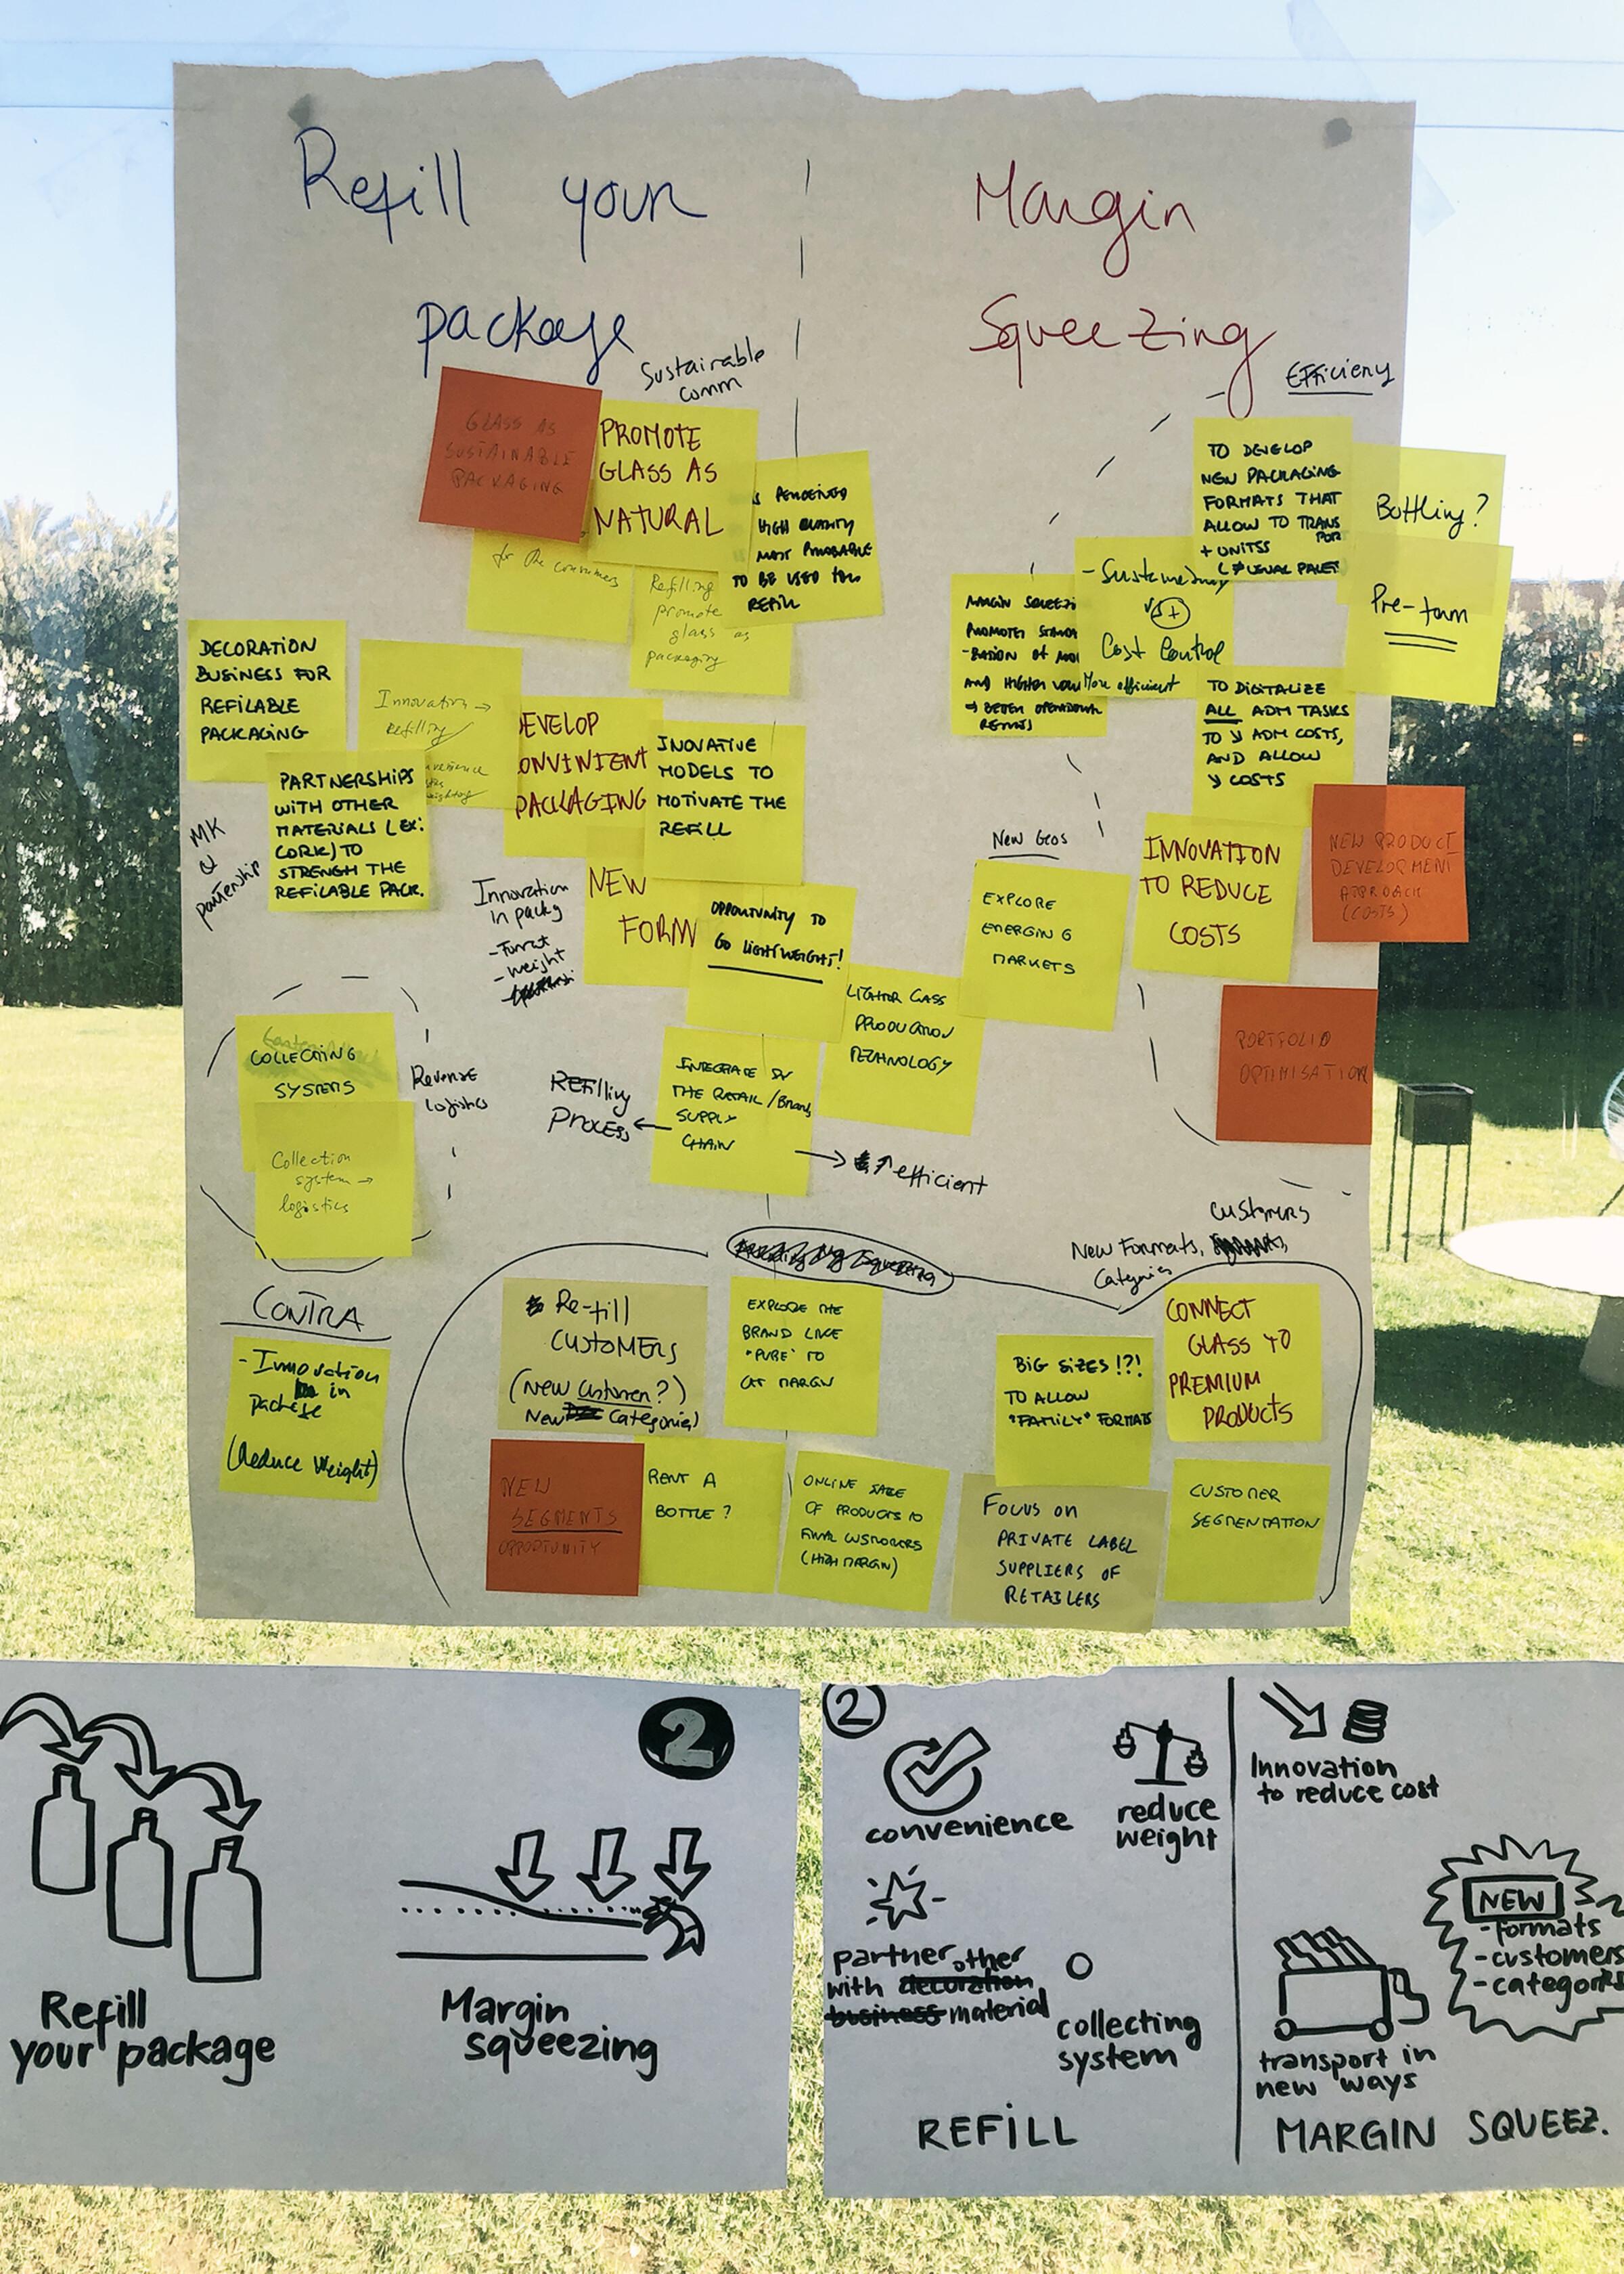 Refill your
package
Margin
Squeezing
Sustainable
comm
Efficieny
GLASS AS
SUSTAINABLE
PACKAGING
PROMOTE
GLASS AS
NATURAL
HIGH QUALITY
MOST PROBABLE
TO BE USED
REFILL
for the consumers
Refilling
promote
glass as
packaging
TO DEVELOP
NEW PACKAGING
FORMATS THAT
ALLOW TO TRANS
POR
+ UNITSS
Bottling?
Pre-form
VS +
Cost Control
More efficient
TO DIGITALIZE
ALL ADM TASKS
TO ↘ ADM COSTS,
AND ALLOW
↘ COSTS
DECORATION
BUSINESS FOR
REFILABLE
PACKAGING
Innovation →
refilling
PARTNERSHIPS
WITH OTHER
MATERIALS (EX:
CORK) TO
STRENGH THE
REFILABLE PACK.
MK
&
partenship
DEVELOP
CONVINIENT
PACKAGING
INOVATIVE
MODELS TO
MOTIVATE THE
REFILL
Innovation
in packg
- Format
- Weight
NEW
FORM
OPPORTUNITY TO
GO LIGHTWEIGHT!
LIGHTER GLASS
PRODUCTION
TECHNOLOGY
New Geos
EXPLORE
EMERGING
MARKETS
INNOVATION
TO REDUCE
COSTS
NEW PRODUCT
DEVELOPMENT
APPROACH
(COSTS)
PORTFOLIO
OPTIMISATION
COLLECTING
SYSTEMS
Collection
system →
logistics
Reverse
logistics
REFilling
Process ←
INTEGRATE IN
THE RETAIL / Brand
SUPPLY
CHAIN
→ ↑ efficient
CONTRA
- Innovation
in
Package
(Reduce Weight)
Customers
New Formats,
Categories
Re-fill
CUSTOMERS
(New Customer?)
New Categories)
EXPLORE THE
BRAND LIKE
"PURE" TO
GET MARGIN
BIG SIZES!?!
TO ALLOW
"FAMILY" FORMATS
CONNECT
GLASS TO
PREMIUM
PRODUCTS
NEW
SEGMENTS
OPPORTUNITY
RENT A
BOTTLE?
ONLINE SALE
OF PRODUCTS TO
FINAL CUSTOMERS
(HIGH MARGIN)
FOCUS ON
PRIVATE LABEL
SUPPLIERS OF
RETAILERS
CUSTOMER
SEGMENTATION
2
Refill
your package
Margin
squeezing
2
convenience
reduce
weight
partner other
with decoration
business material
collecting
system
REFILL
Innovation
to reduce cost
NEW
- formats
- customers
- categories
transport in
new ways
MARGIN SQUEEZ.